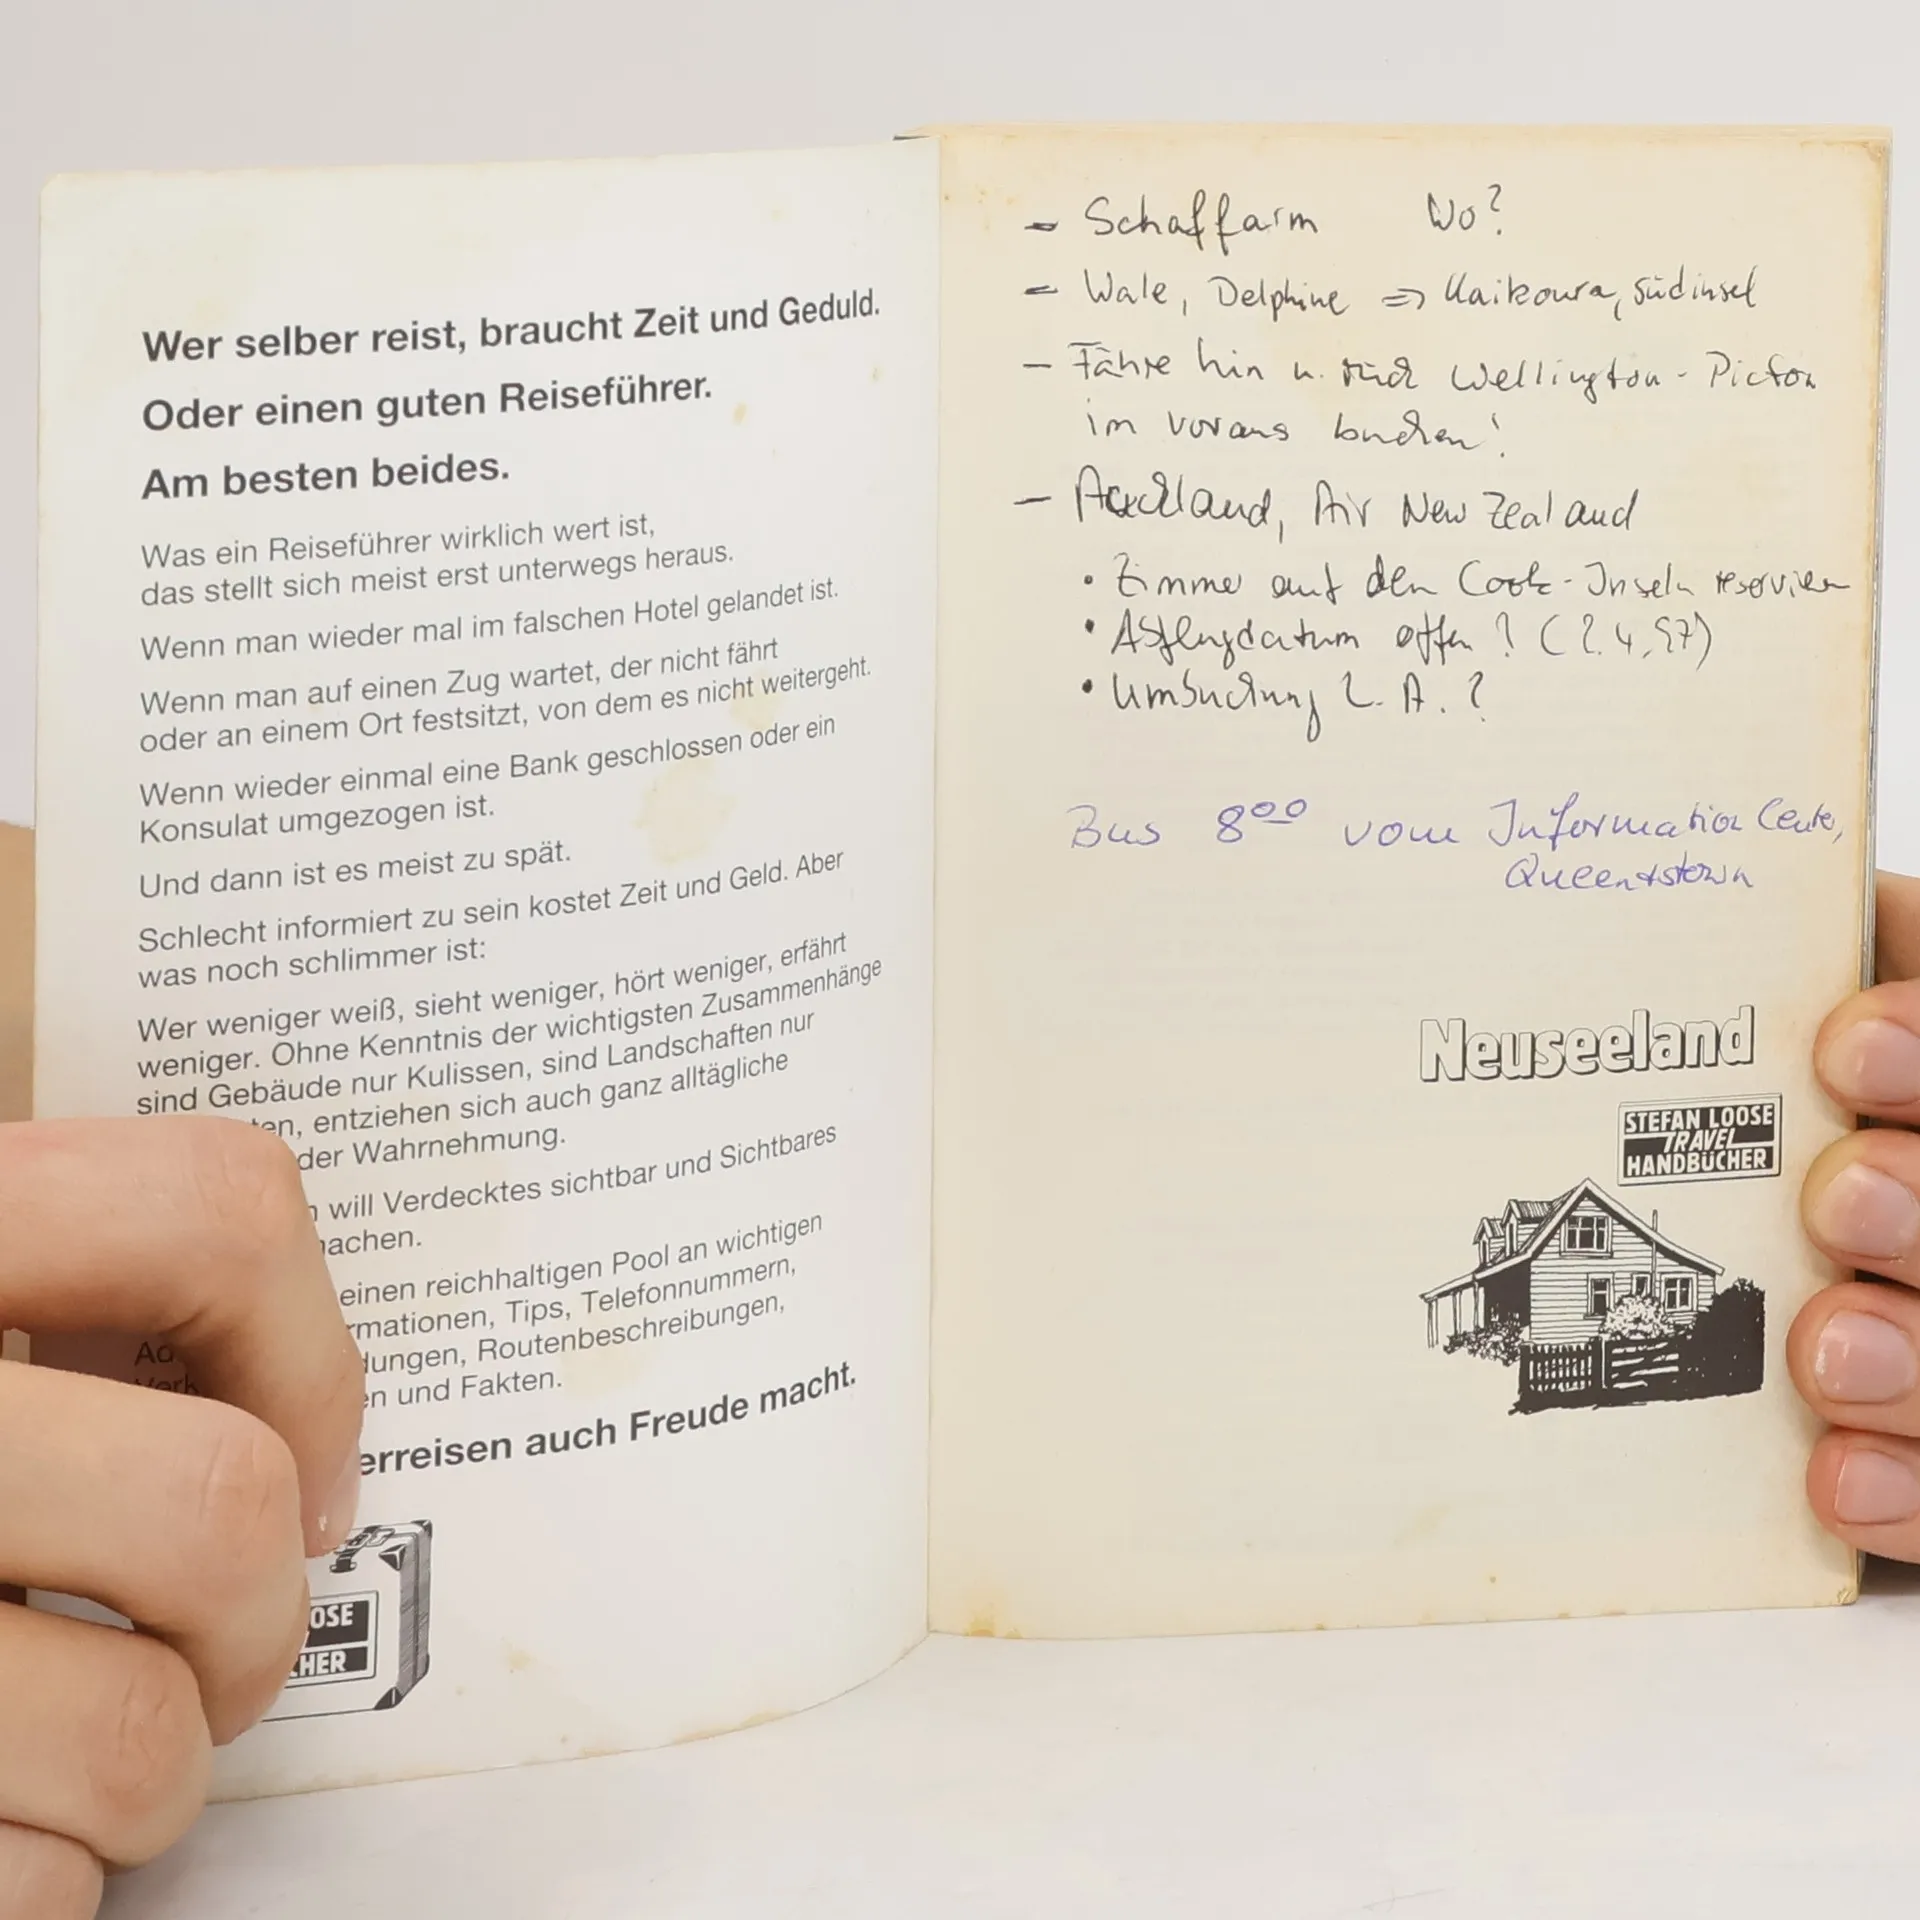 Wer selber reist, braucht Zeit und Geduld.
Oder einen guten Reiseführer.
Am besten beides.
Was ein Reiseführer wirklich wert ist,
das stellt sich meist erst unterwegs heraus.
Wenn man wieder mal im falschen Hotel gelandet ist.
Wenn man auf einen Zug wartet, der nicht fährt
oder an einem Ort festsitzt, von dem es nicht weitergeht.
Wenn wieder einmal eine Bank geschlossen oder ein
Konsulat umgezogen ist.
Und dann ist es meist zu spät.
Schlecht informiert zu sein kostet Zeit und Geld. Aber
was noch schlimmer ist:
Wer weniger weiß, sieht weniger, hört weniger, erfährt
weniger. Ohne Kenntnis der wichtigsten Zusammenhänge
sind Gebäude nur Kulissen, sind Landschaften nur
en, entziehen sich auch ganz alltägliche
der Wahrnehmung.
will Verdecktes sichtbar und Sichtbares
achen.
einen reichhaltigen Pool an wichtigen
rmationen, Tips, Telefonnummern,
Ad
dungen, Routenbeschreibungen,
Verk
en und Fakten.
erreisen auch Freude macht.
OSE
HER
- Schaffarm Wo?
- Wale, Delphine => Kaikoura, Südinsel
- Fähre hin u. rück Wellington - Picton
im voraus buchen!
- Auckland, Air New Zealand
• Zimmer auf den Cook-Inseln reservieren
• Abflugdatum offen? (2.4.97)
• Umbuchung L.A.?
Bus 8⁰⁰ vom Information Centre,
Queenstown
Neuseeland
STEFAN LOOSE
TRAVEL
HANDBÜCHER